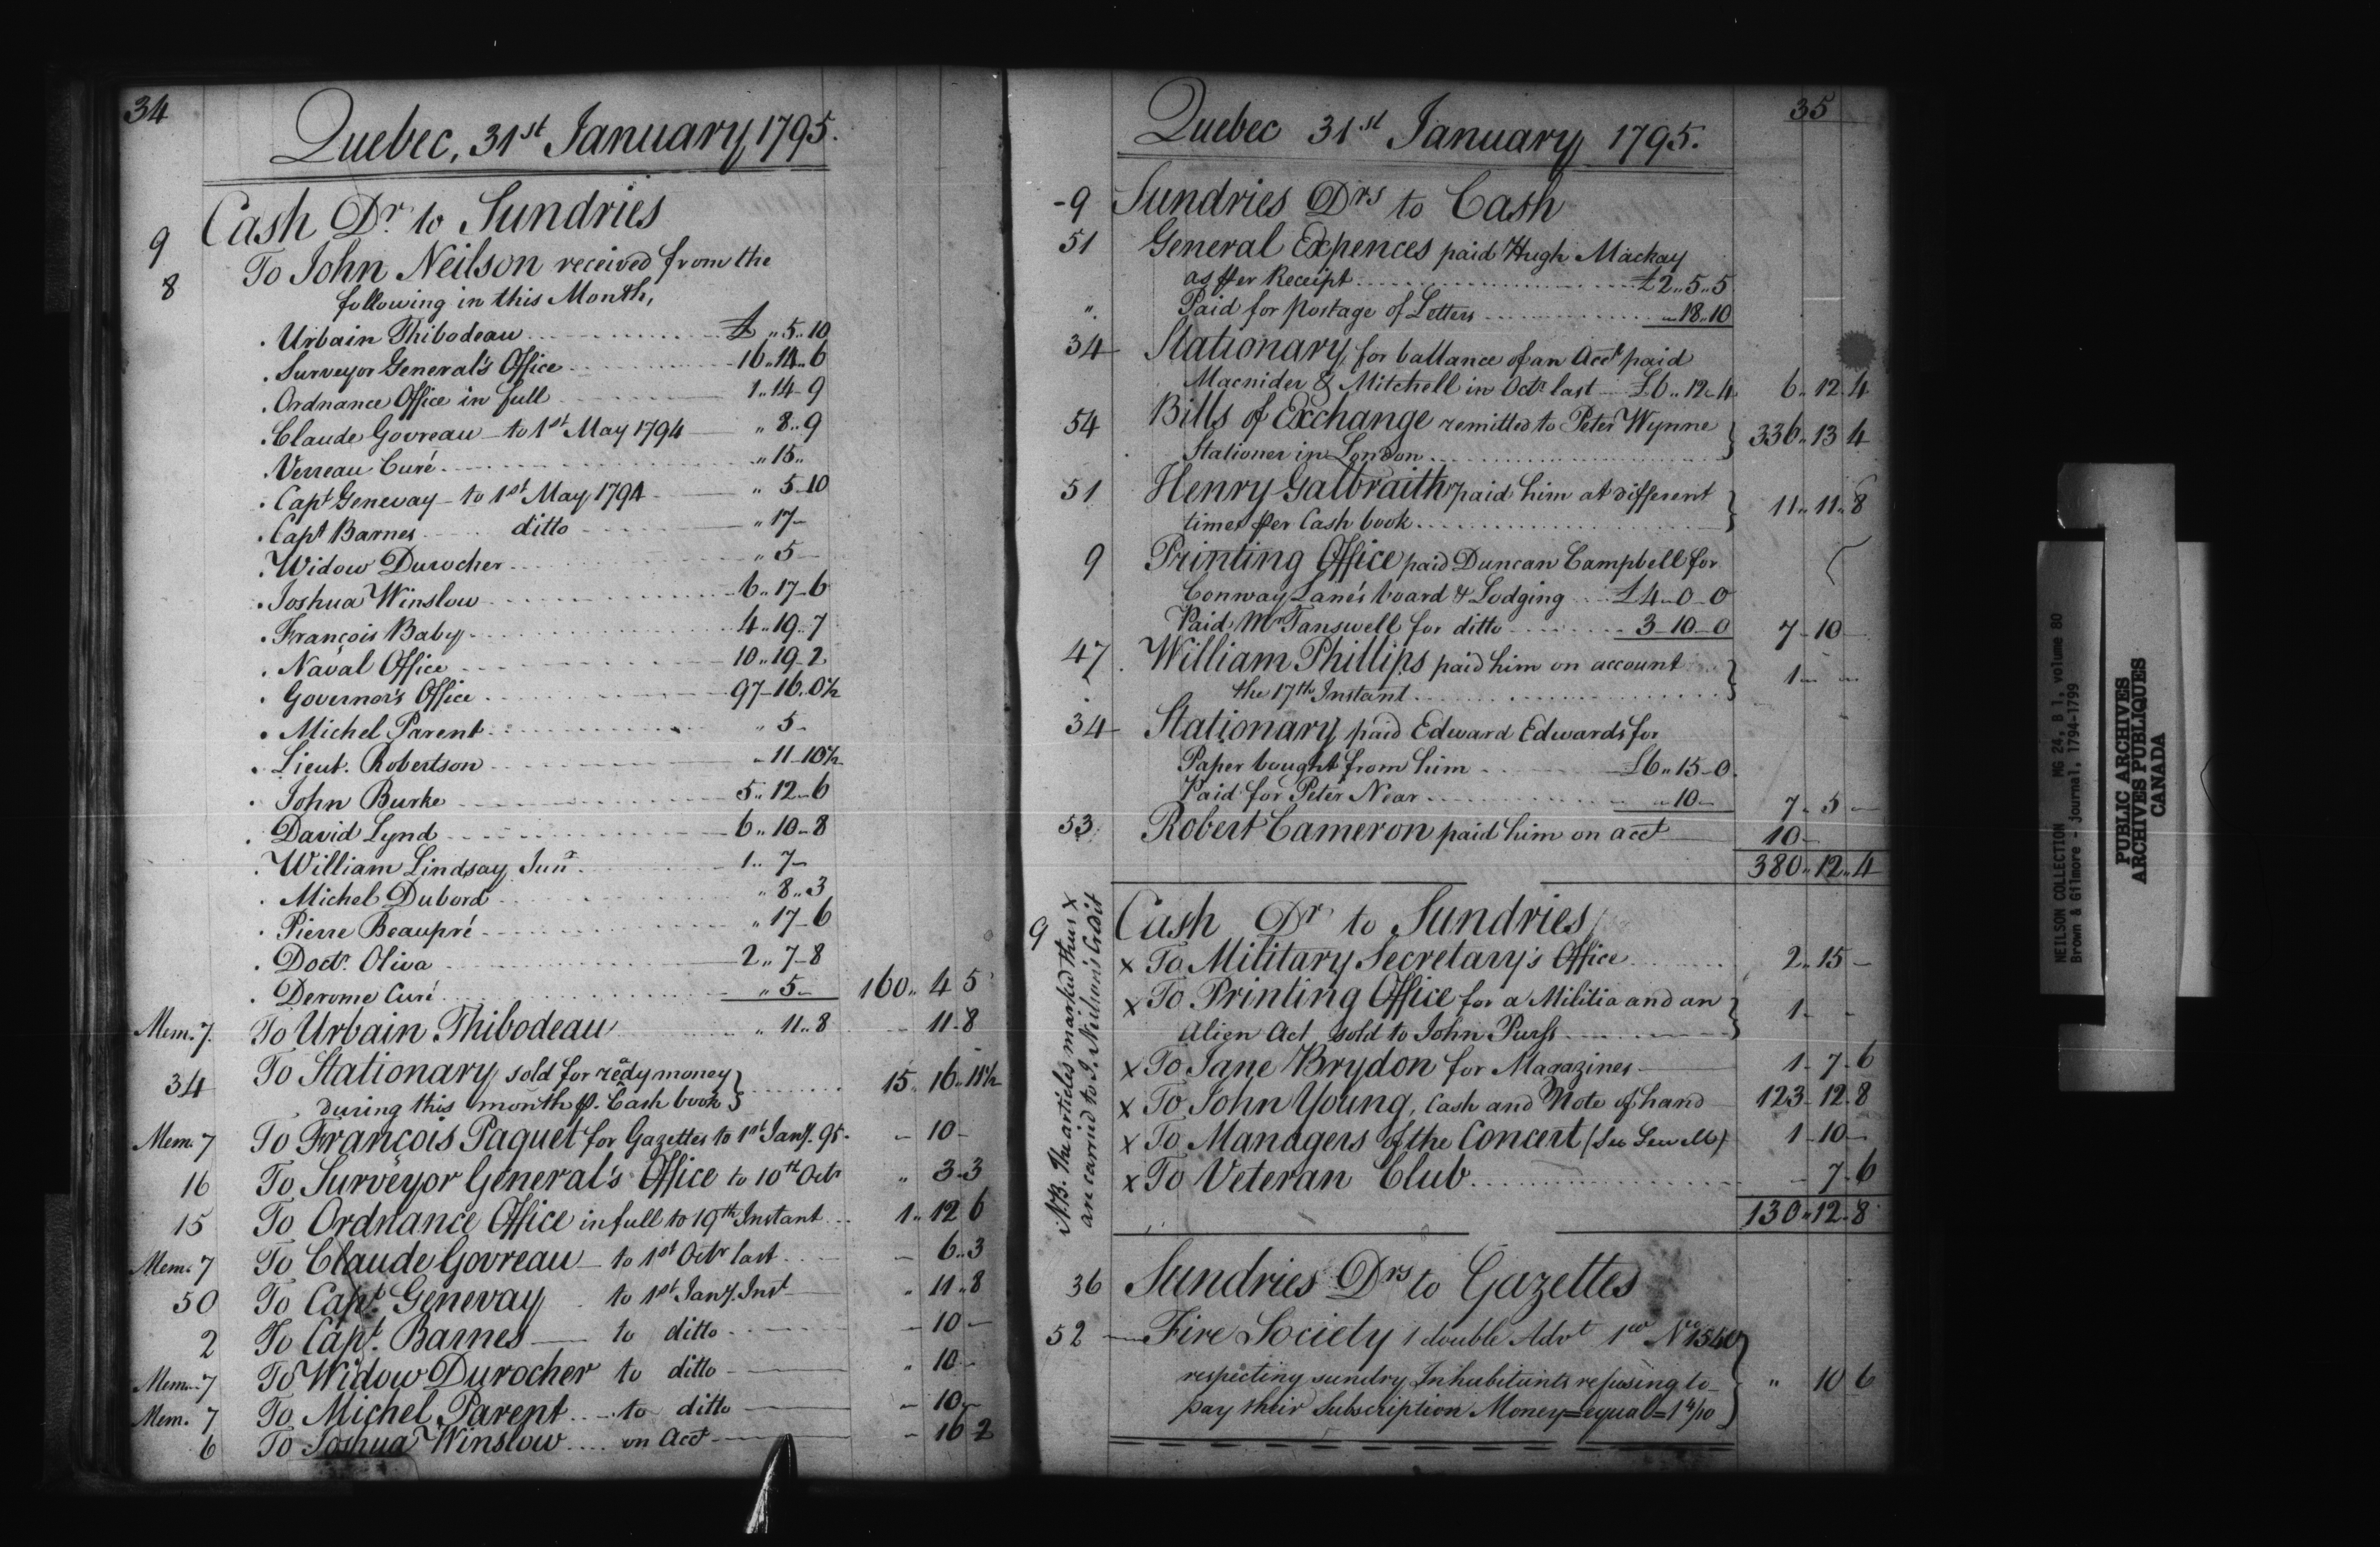 34
Quebec, 31st January, 1795.
9 Cash Dr. to Sundries
8 To John Neilson received from the
following in this Month,
. Urbain Thibodeau £ " 5..10
. Surveyor General's Office 16..14..6
. Ordnance Office in full 1..14-9
. Claude Govreau to 1st May 1794 " 8..9
. Verreau Curé " 15..
. Capt Genevay to 1st May 1794 " 5-10
. Capt Barnes ditto " 17-
. Widow Durocher " 5-
. Joshua Winslow 6..17-6
. François Baby 4..19..7
. Naval Office 10..19-2
. Governor's Office 97-16..0½
. Michel Parent " 5-
. Lieut. Robertson - 11-10½
. John Burke 5..12-6
. David Lynd 6..10-8
. William Lindsay Junr. 1..7-
. Michel Dubord " 8..3
. Pierre Beaupré " 17-6
. Doctr. Oliva 2..7-8
. Derome Curé " 5- 160..4 5
Mem. 7. To Urbain Thibodeau " 11..8 - 11-8
34 To Stationary sold for redy money
during this month p. Cash book 15..16..11½
Mem. 7 To François Paquet for Gazettes to 1st Jany. 95. - 10-
16 To Surveyor General's Office to 10th Octr " 3-3
15 To Ordnance Office in full to 19th Instant 1..12 6
Mem. 7 To Claude Govreau to 1st Octr last - 6..3
50 To Capt. Genevay to 1st Jany. Inst " 11..8
2 To Capt. Barnes to ditto - 10-
Mem. 7 To Widow Durocher to ditto " 10-
Mem. 7 To Michel Parent to ditto - 10-
6 To Joshua Winslow on Acct - 16 2
35
Quebec 31st January 1795.
-9 Sundries Drs to Cash
51 General Expences paid Hugh Mackay
as per Receipt £2..5..5
". Paid for postage of Letters 18..10
34 Stationary, for ballance of an Acct paid
Macnider & Mitchell in Octr last £6..12-4 6..12 4
54 Bills of Exchange remitted to Peter Wynne
Stationer in London 336..13 4
51 Henry Galbraith paid him at different
times per Cash book 11..11..8
9 Printing Office paid Duncan Campbell for
Conway Lane's board & Lodging £4-0-0
Paid Mr Tanswell for ditto 3-10-0 7-10-
47. William Phillips paid him on account
the 17th Instant 1- -
34 Stationary paid Edward Edwards for
Paper bought from him £6..15-0.
Paid for Peter Near -10- 7-5-
53. Robert Cameron paid him on acct 10-
380..12..4
9 Cash Dr to Sundries
x To Military Secretary's Office 2..15-
x To Printing Office for a Militia and an
Alien Act, sold to John Purss 1- -
x To Jane Brydon for Magazines 1-7-6
x To John Young, Cash and Note of hand 123-12-8
x To Managers of the Concert (See Sewell) 1-10-
x To Veteran Club - 7-6
130..12-8
N.B. The articles marked thus x
are carried to J. Neilson's Credit
36 Sundries Drs to Gazettes
52 Fire Society 1 double Advt 1co No 1540
respecting sundry Inhabitants refusing to
pay their Subscription Money=equal= " 10 6
NEILSON COLLECTION MG 24, B 1, volume 80
Brown & Gilmore - Journal, 1794-1799
PUBLIC ARCHIVES
ARCHIVES PUBLIQUES
CANADA